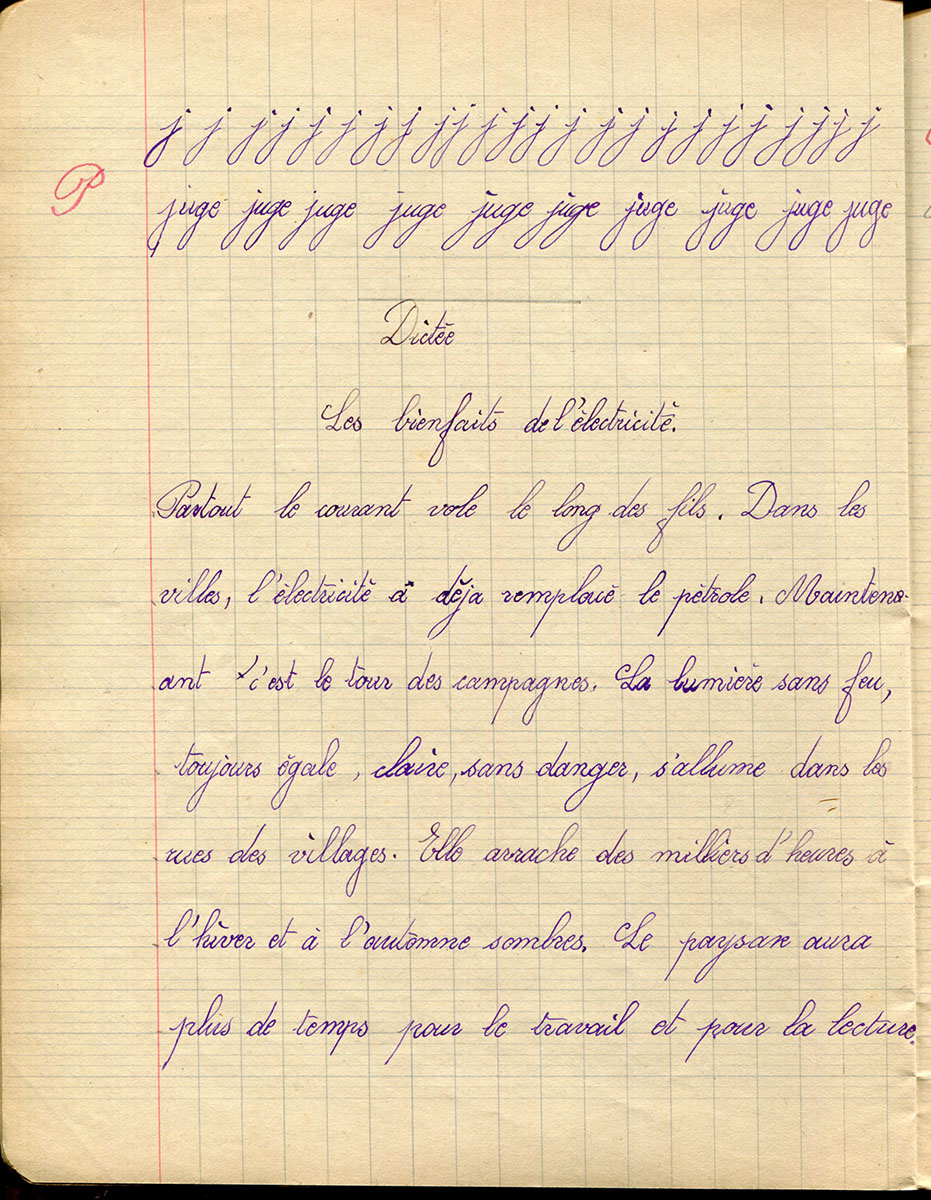 j j j j j j j j j j j j j j j j j j j j j j j j
P
juge juge juge juge juge juge juge juge juge juge
Dictée
Les bienfaits de l'électricité.
Partout le courant vole le long des fils. Dans les
villes, l'électricité à déja remplacé le pétrole. Mainten-
ant c'est le tour des campagnes. La lumière sans feu,
toujours égale, claire, sans danger, s'allume dans les
rues des villages. Elle arrache des milliers d'heures à
l'hiver et à l'automne sombres. Le paysan aura
plus de temps pour le travail et pour la lecture.